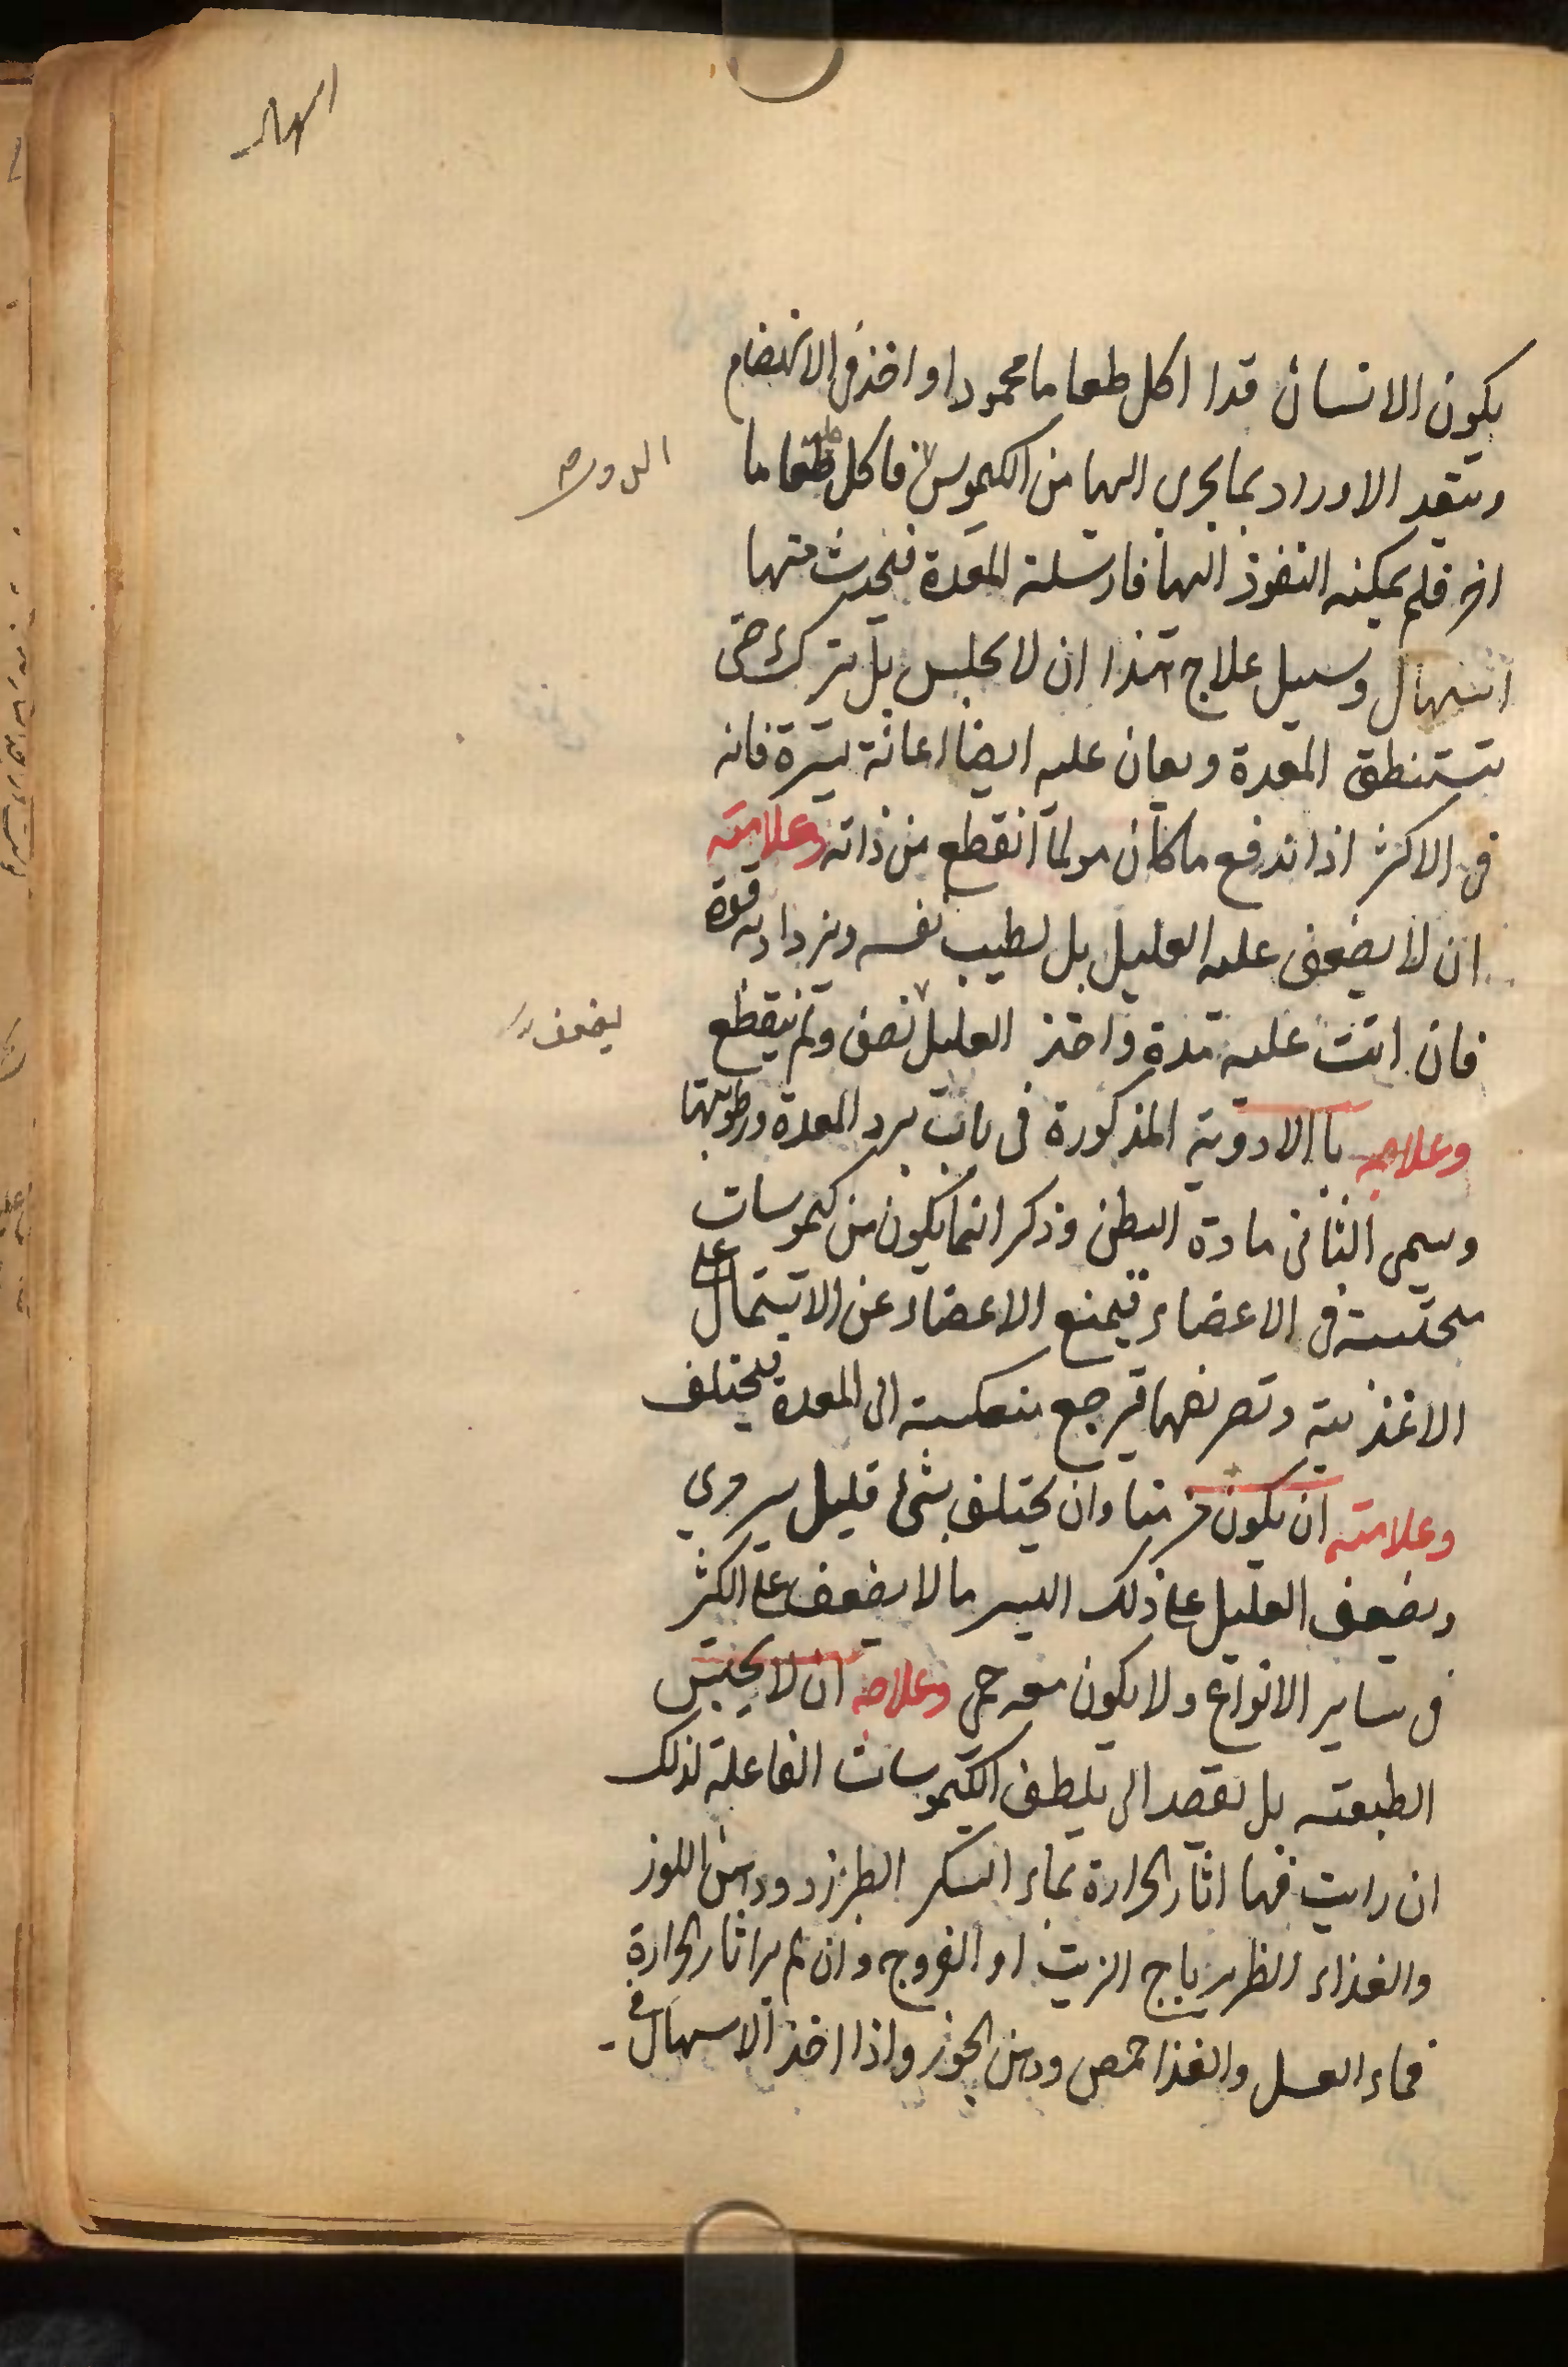 اسهال
يكون الانسان قدا اكل طعاما محمودا واخذ فى الانهضام
وتنقد الاوراد بما يجرى اليها من الكيموس فاكل طعاما
اخر فلم يمكنه النفوذ اليها فارسلته المعدة فيحدث منها
اسهال وسبيل علاج هذا ان لا يحلبس بل يترك حتى
يستنطق المعدة ويعان عليه ايضا اعانة يسيرة فانه
فى الاكثر اذا اندفع ما كان مولما انقطع من ذاته وعلامته
ان لا يضعف عليه العليل بل يطيب نفسه ويزداد به قوة
فان اتت عليه مدة واخذ العليل نصف ولم ينقطع
يضعف
وعلاجه باالادوية المذكورة فى باب برد المعدة ورطوبتها
وسمى الثانى مادة البطن وذكر انما يكون من كيموسات
محتبسة فى الاعضاء فيمنع الاعضاء عن الاشتمال على
الاغذيية وتصريفها فترجع منعكسة الى المعدة فيختلف
وعلامته ان يكون مزمنا وان يختلف بشئ قليل مروي
ويضعف العليل على ذلك اليسير ما لا يضعف على الكثر
فى ساير الانواع ولا يكون معه حمى وعلاجه ان لا يحبس
الطبيعته بل يقصد الى تلطف الكيموسات الفاعلة لذلك
ان رايت فيها اثار الحرارة بماء السكر الطبرزد ودهن اللوز
والغذاء الظريرباج الزيت او الفروج وان لم ير اثار الحرارة
فماء العسل والغذا حمص ودهن الجوز واذا اخذ الاسهال فى